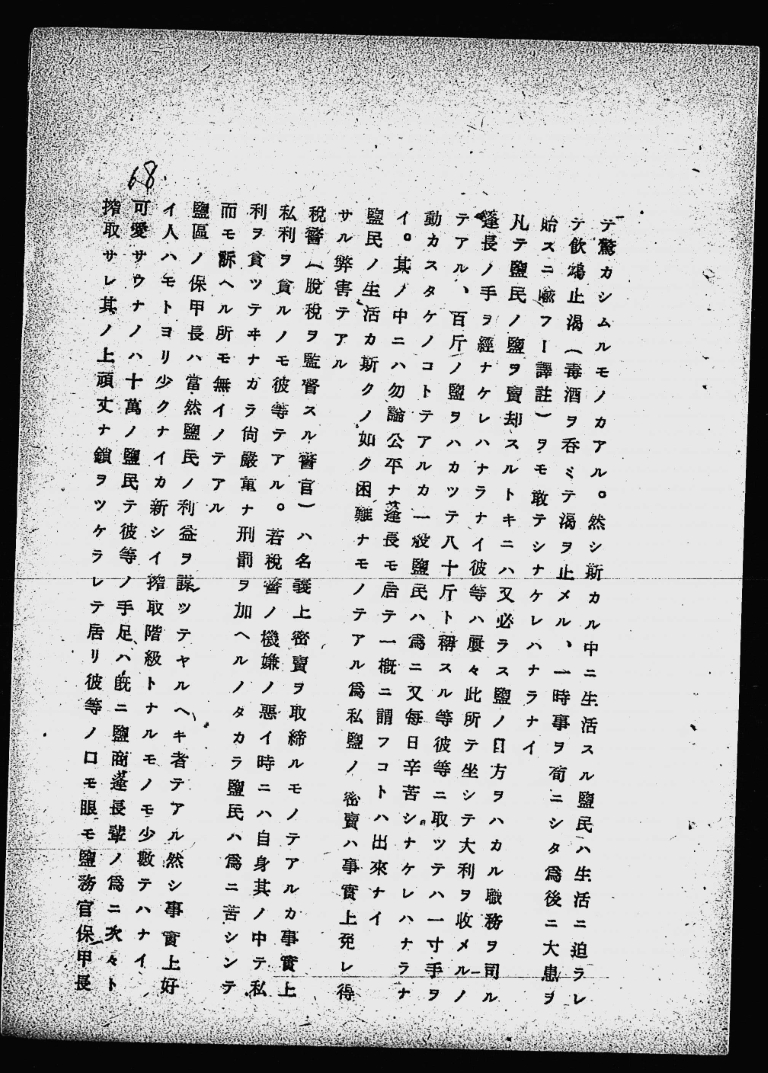 68.
テ驚カシムルモノカアル。然シ斯カル中ニ生活スル鹽民ハ生活ニ迫ラレ
テ飲鴆止渇(毒酒ヲ呑ミテ渇ヲ止メル、一時事ヲ苟ニシタ爲後ニ大患ヲ
始スニ喩フー譯註)ヲモ敢テシナケレハナラナイ
凡テ鹽民ノ鹽ヲ賣却スルトキニハ又必ラス鹽ノ目方ヲハカル職務ヲ司ル
蓬長ノ手ヲ經ナケレハナラナイ彼等ハ屡々此所テ坐シテ大利ヲ收メルノ
テアル、百斤ノ鹽ヲハカツテ八十斤ト稱スル等彼等ニ取ツテハ一寸手ヲ
動カスタケノコトテアルカ一般鹽民ハ爲ニ又每日辛苦シナケレハナラナ
イ。其ノ中ニハ勿論公平ナ蓬長モ居テ一概ニ謂フコトハ出來ナイ
鹽民ノ生活カ斯クノ如ク困難ナモノテアル爲私鹽ノ密賣ハ事實上免レ得
サル弊害テアル
稅警(脫稅ヲ監督スル警官)ハ名義上密賣ヲ取締ルモノテアルカ事實上
私利ヲ貪ルノモ彼等テアル。若稅警ノ機嫌ノ惡イ時ニハ自身其ノ中テ私
利ヲ貪ツテヰナカラ尙嚴重ナ刑罰ヲ加ヘルノタカラ鹽民ハ爲ニ苦シンテ
而モ訴ヘル所モ無イノテアル
鹽區ノ保甲長ハ當然鹽民ノ利益ヲ謀ツテヤルヘキ者テアル然シ事實上好
イ人ハモトヨリ少クナイカ新シイ搾取階級トナルモノモ少數テハナイ
可愛サウナノハ十萬ノ鹽民テ彼等ノ手足ハ既ニ鹽商蓬長輩ノ爲ニ次々ト
搾取サレ其ノ上頑丈ナ鎖ヲツケラレテ居リ彼等ノ口モ眼モ鹽務官保甲長